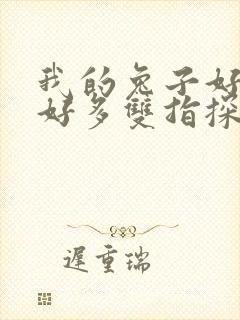 我的兔子好
好多雙指探
遲重瑞